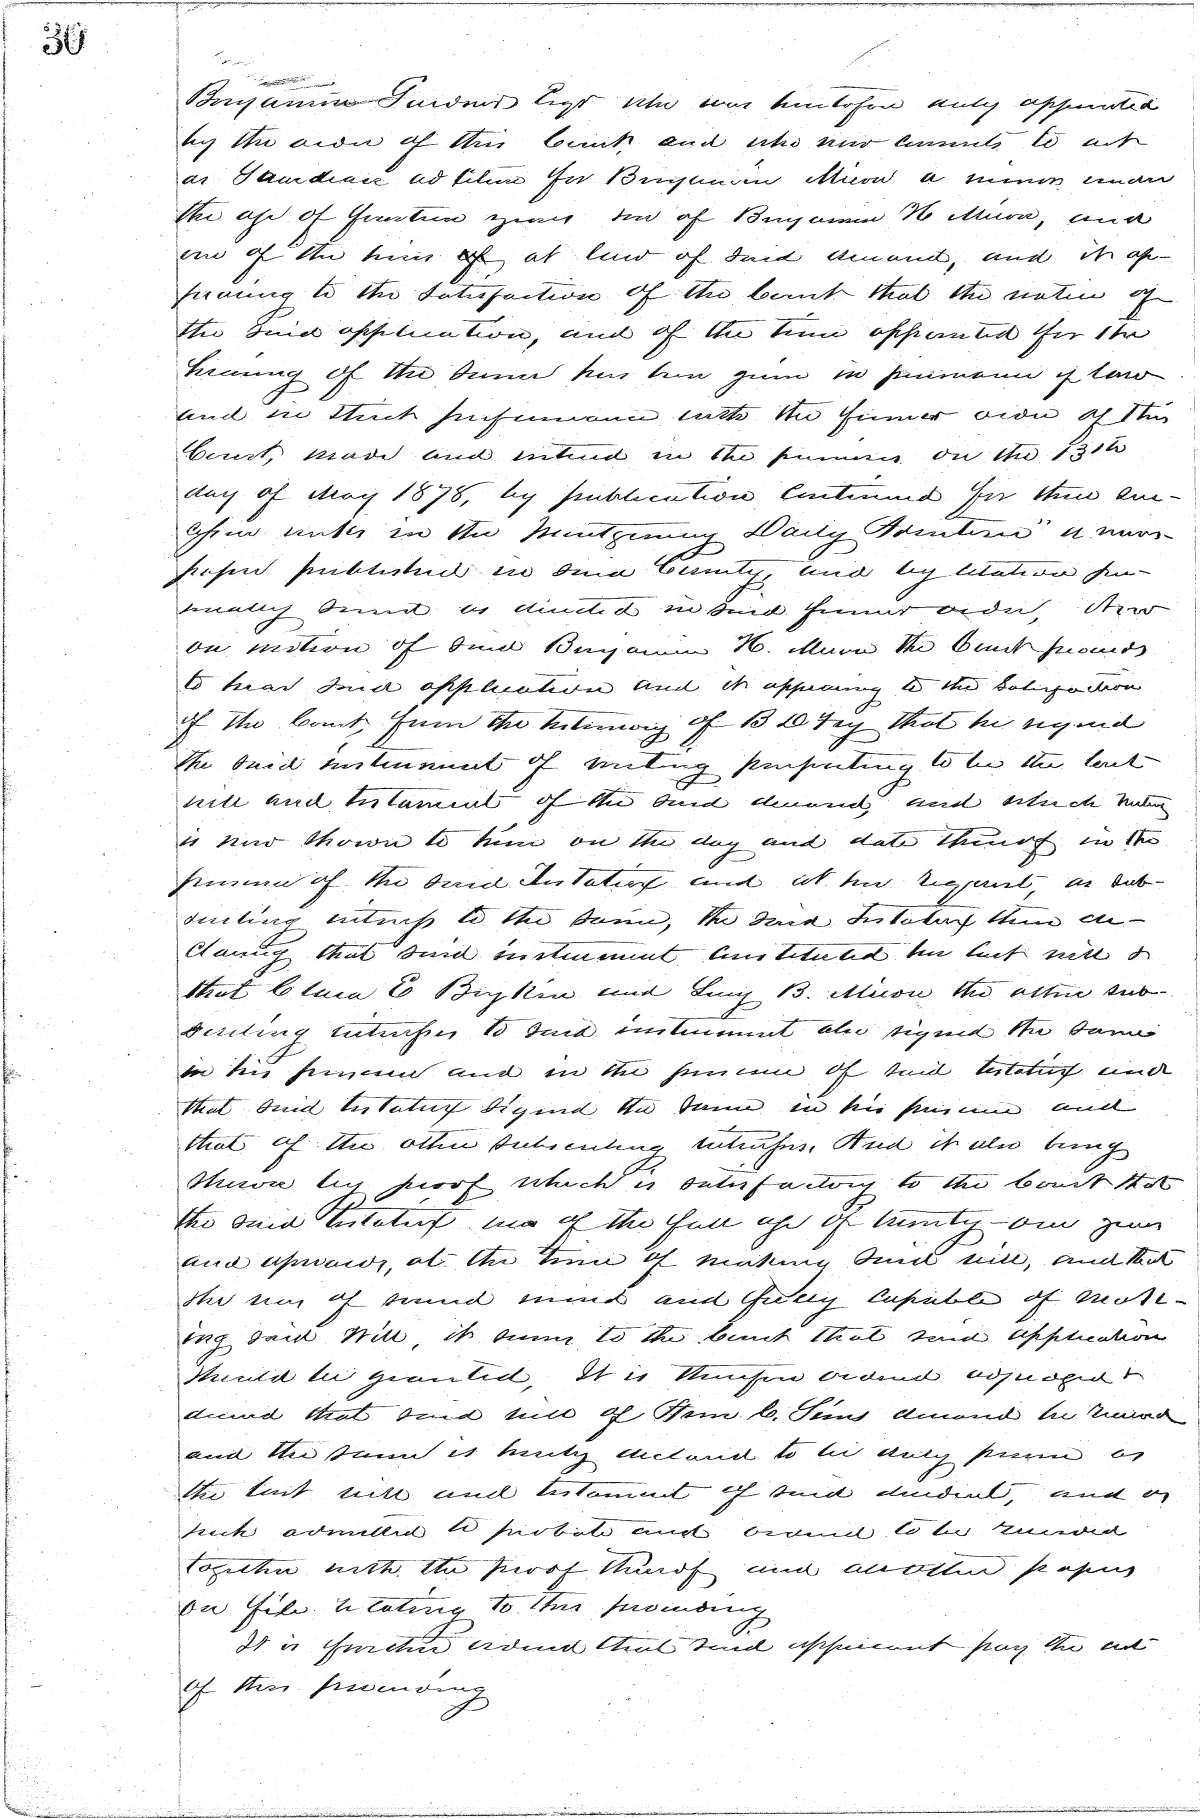 30
Benjamin Esqr who was heretofore duly appointed
by the order of this Court, and who now consents to act
as Guardian ad litem for Benjamin Micou a minor under
the age of fourteen years son of Benjamin H Micou, and
one of the heirs of at law of said deceased, and it ap-
pearing to the satisfaction of the Court that the notice of
the said application, and of the time appointed for the
hearing of the same has been given in pursuance of law
and in strict pursuance with the former order of this
Court, made and entered in the premises on the 13th
day of May 1878, by publication continued for three suc-
cessive weeks in the Montgomery Daily Advertiser" a news-
paper published in said County, and by citation per-
sonally served as directed in said former order, Now
on motion of said Benjamin H. Micou the Court proceeds
to hear said application and it appearing to the satisfaction
of the Court, from the testimony of B D Fry that he signed
the said instrument of writing purporting to be the last
will and testament of the said deceased, and which writing
is now shown to him on the day and date thereof in the
presence of the said Testatrix and at her request, as sub-
scribing witness to the same, the said Testatrix then de-
claring that said instrument constituted her last will &
that Clara E and Lucy B. Micou the other sub-
scribing witnesses to said instrument also signed the same
in his presence and in the presence of said testatrix and
that said testatrix signed the same in his presence and
that of the other subscribing witnesses. And it also being
shown by proof which is satisfactory to the Court that
the said testatrix was of the full age of twenty-one years
and upwards, at the time of making said will, and that
she was of sound mind and fully capable of mak-
ing said Will, it seems to the Court that said application
should be granted, It is therefore ordered adjudged &
decreed that said will of Ann C. Sims deceased be received
and the same is hereby declared to be duly proven as
the last will and testament of said decedent, and as
such admitted to probate and ordered to be recorded
together with the proof thereof and all other papers
on file relating to this proceeding
It is further ordered that said applicant pay the cost
of this proceeding